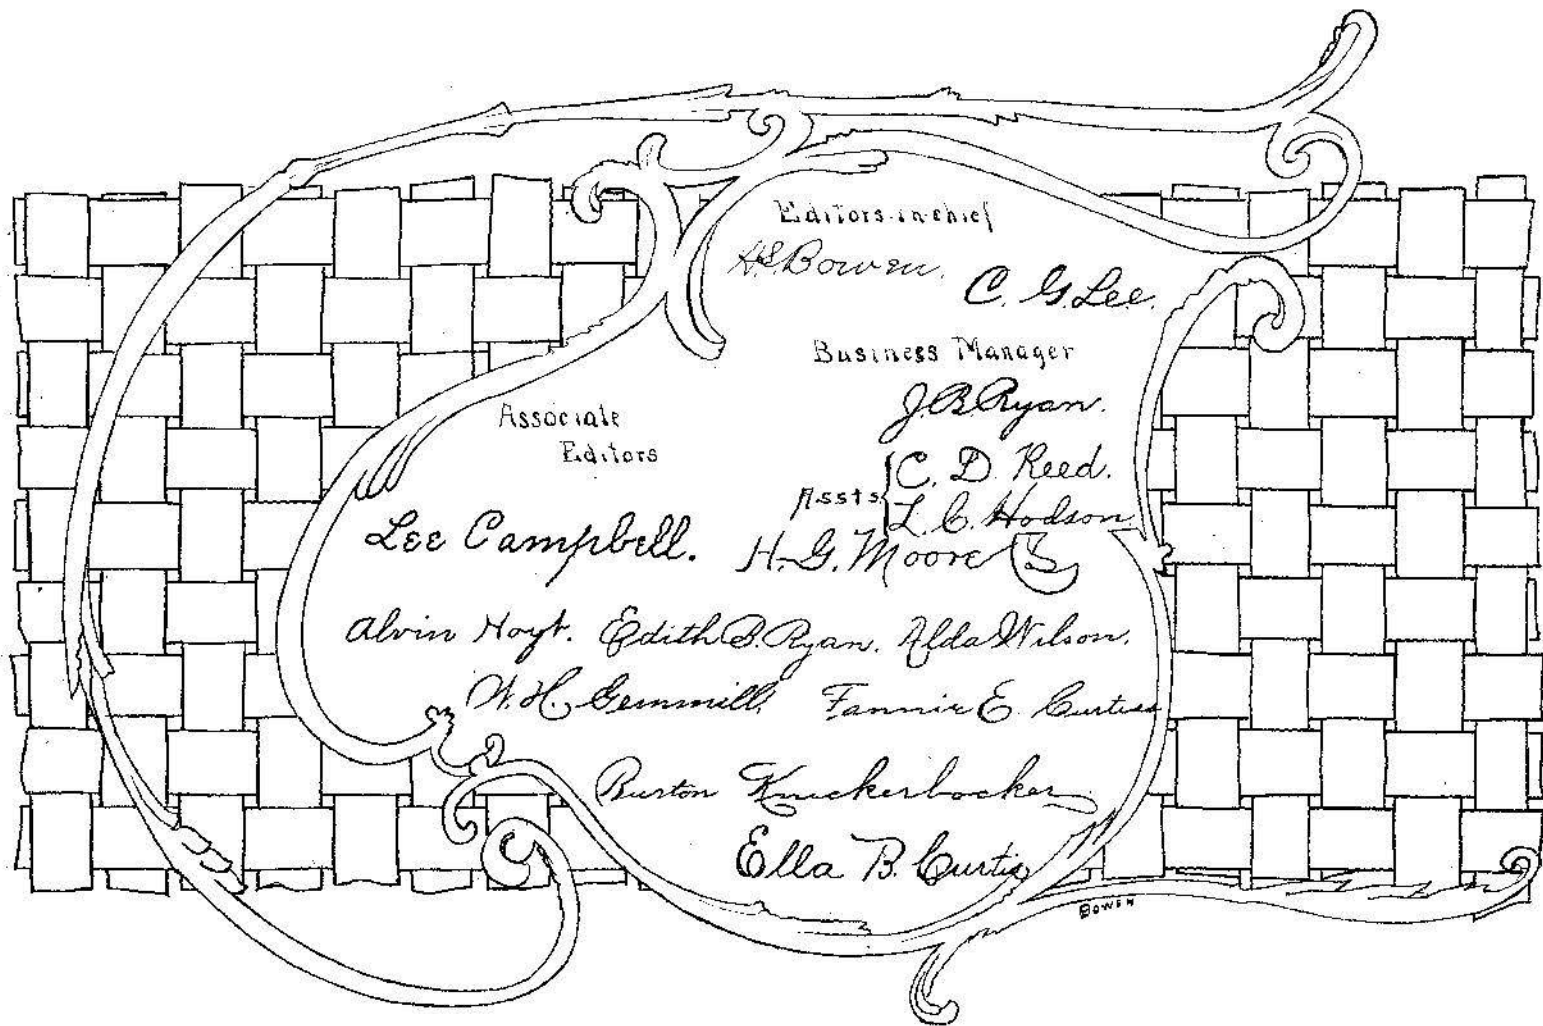 Editors-in-chief
H.E. Bowen.
C. G. Lee.
Business Manager
J. B. Ryan.
Assts. C. D. Reed.
L. C. Hodson
Associate
Editors
Lee Campbell. H. G. Moore
Alvin Hoyt. Edith B. Ryan. Alda Wilson.
W. H. Gemmill. Fannie E. Curtiss
Burton Knickerbocker
Ella B. Curtis
BOWEN